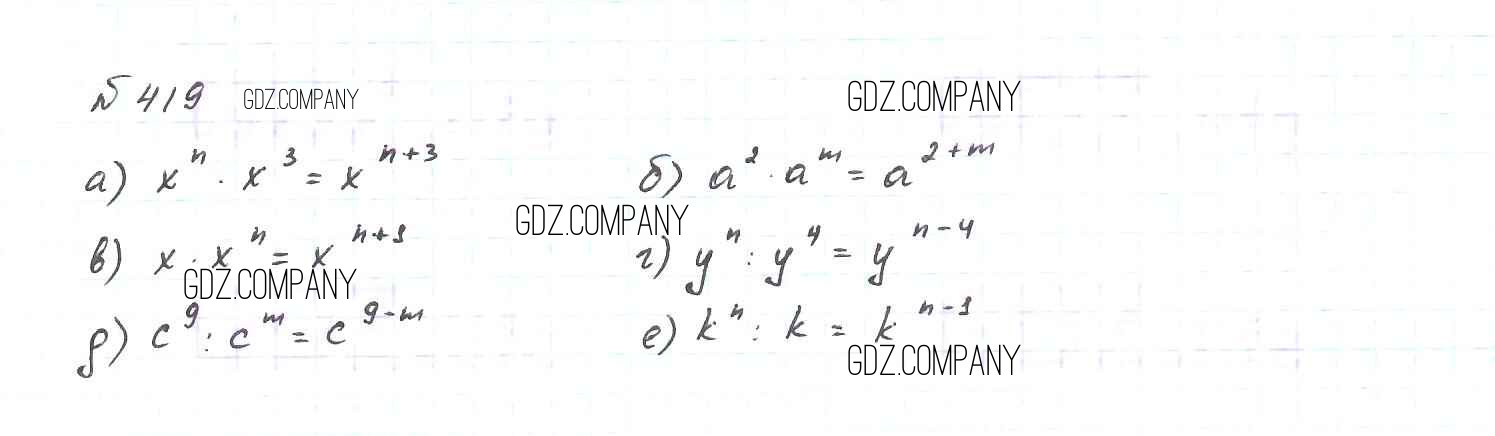 № 419 GDZ.COMPANY GDZ.COMPANY
а) xⁿ · x³ = xⁿ⁺³ б) a² · aᵐ = a²⁺ᵐ
GDZ.COMPANY
в) x · xⁿ = xⁿ⁺¹ г) yⁿ : y⁴ = yⁿ⁻⁴
GDZ.COMPANY
д) c⁹ : cᵐ = c⁹⁻ᵐ е) kⁿ : k = kⁿ⁻¹
GDZ.COMPANY